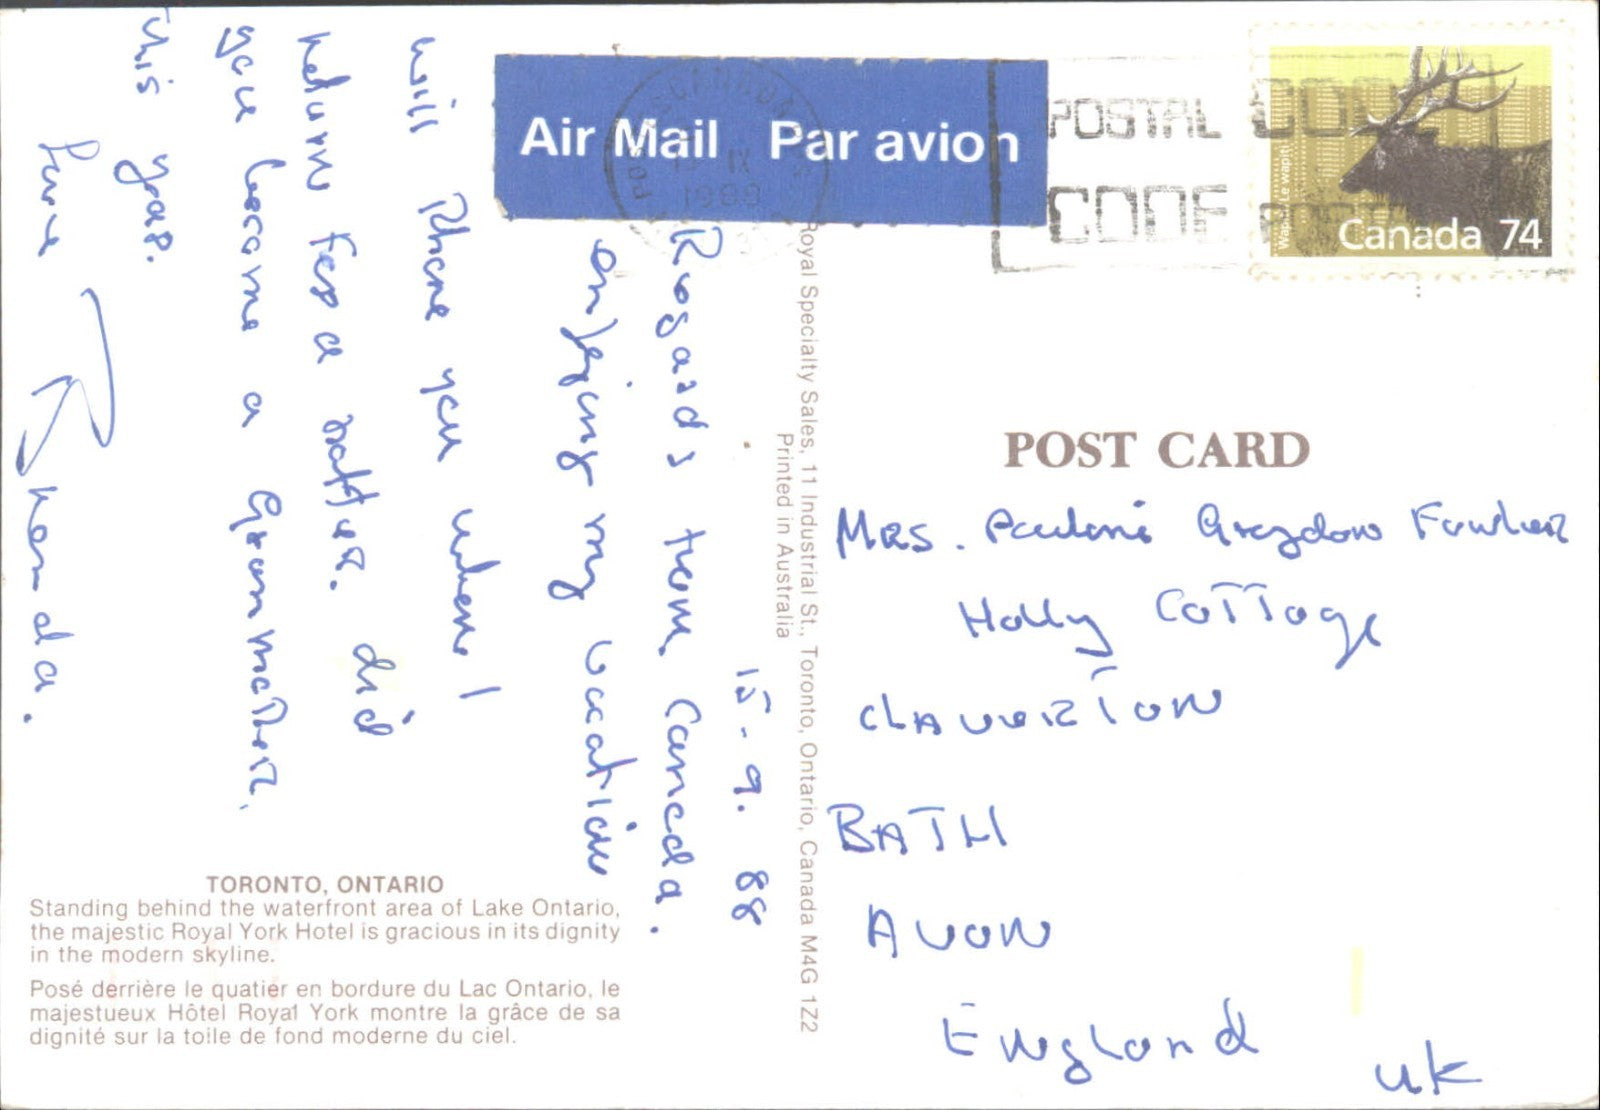 Air Mail Par avion
POSTAL CODE
Wapiti / Le wapiti
Canada 74
15-9.88
Regards from Canada.
enjoying my vacation
will Phone you when I
return For a natter. did
you become a Granmother.
this year.
Love
POST CARD
Mrs. Pauline Graydon Fowler
Holly Cottage
CLAVERTON
BATH
AVON
England
UK
Royal Specialty Sales, 11 Industrial St., Toronto, Ontario, Canada M4G 1Z2
Printed in Australia
TORONTO, ONTARIO
Standing behind the waterfront area of Lake Ontario,
the majestic Royal York Hotel is gracious in its dignity
in the modern skyline.
Posé derrière le quatier en bordure du Lac Ontario, le
majestueux Hôtel Royal York montre la grâce de sa
dignité sur la toile de fond moderne du ciel.